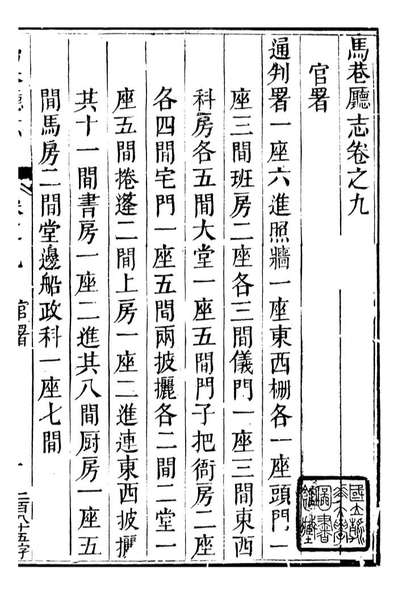 馬巷廳志卷之九
官署
通判署一座六進照牆一座東西柵各一座頭門一
座三間班房二座各三間儀門一座三間東西
科房各五間大堂一座五間門子把衙房二座
各四間宅門一座五間兩披攦各二間二堂一
座五間捲蓬二間上房一座二進連東西披攦
共十一間書房一座二進共八間厨房一座五
間馬房二間堂邊船政科一座七間
官署
二百八十五字